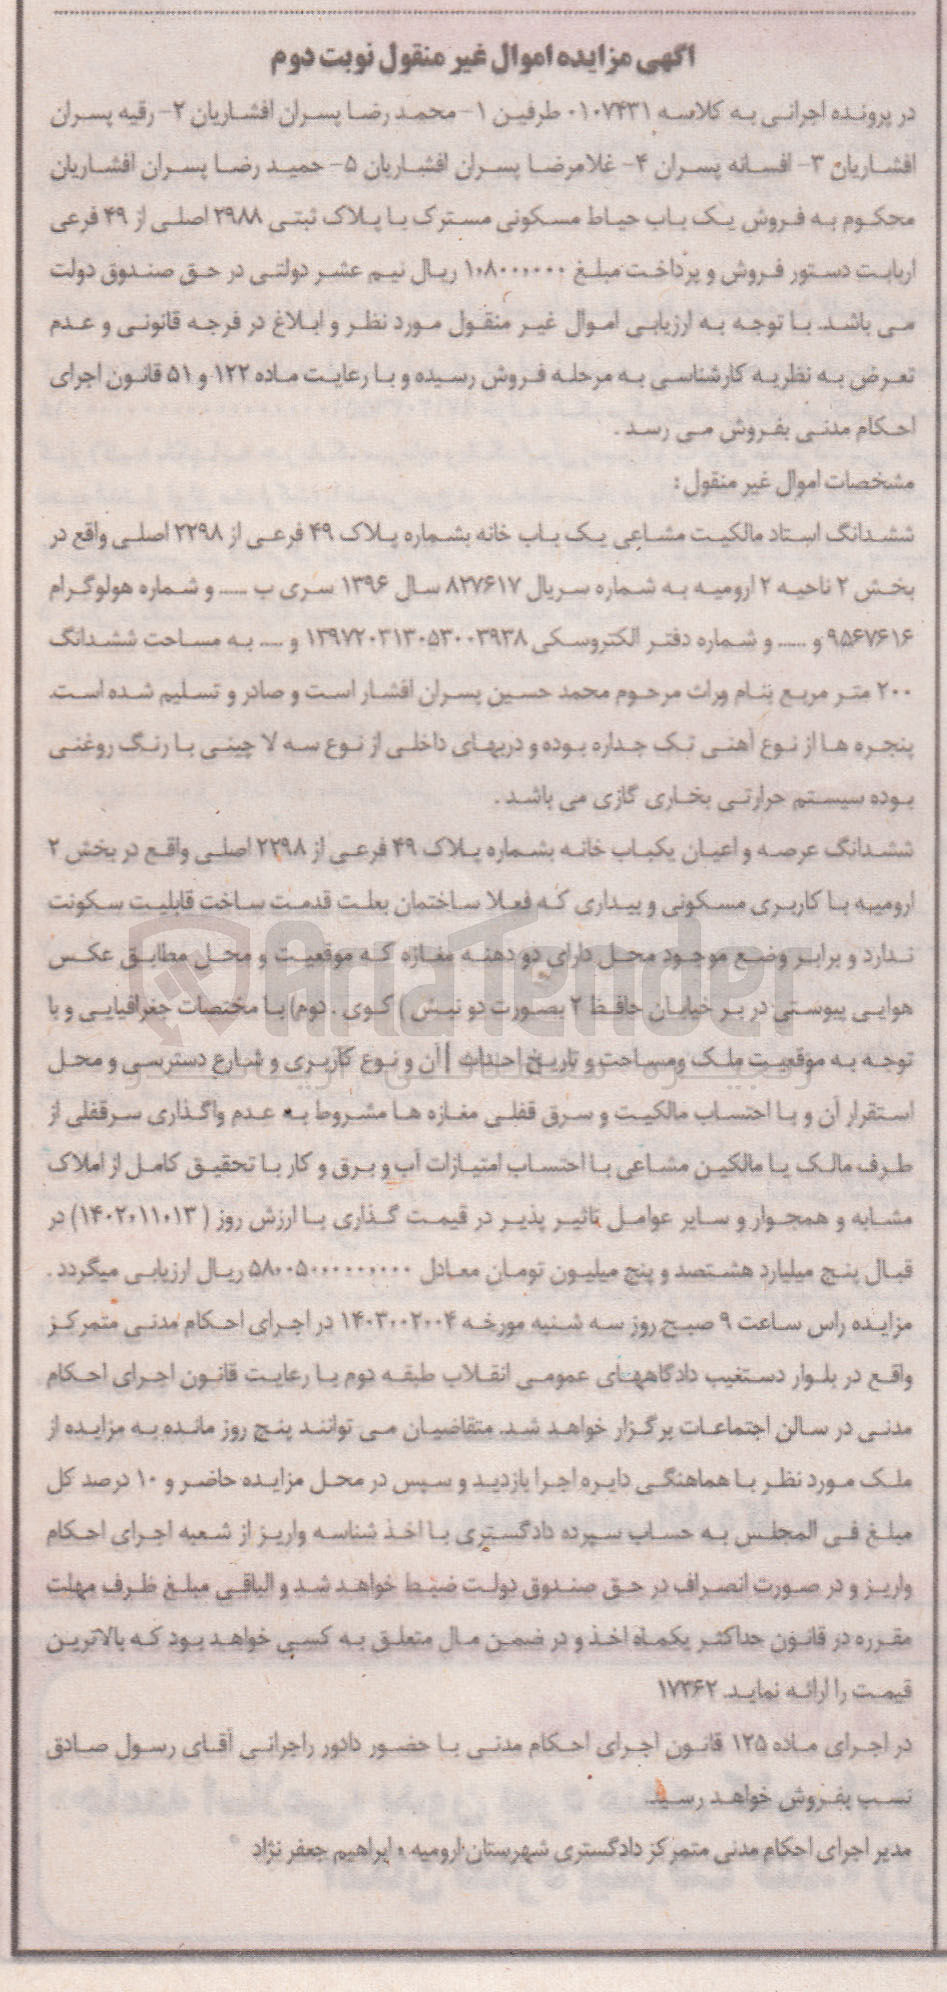 آگهی مزایده اموال غیر منقول نوبت دوم
در پرونده اجرائی به کلاسه ۰۱۰۷۴۳۱ طرفین ۱- محمد رضا پسران افشاریان ۲- رقیه پسران
افشاریان ۳- افسانه پسران ۴- غلامرضا پسران افشاریان ۵- حمید رضا پسران افشاریان
محکوم به فروش یک باب حیاط مسکونی مسترک با پلاک ثبتی ۲۹۸۸ اصلی از ۴۹ فرعی
اربابت دستور فروش و پرداخت مبلغ ۱،۸۰۰۰،۰۰۰ ریال نیم عشر دولتی در حق صندوق دولت
می باشد. با توجه به ارزیابی اموال غیر منقول مورد نظر و ابلاغ در فرجه قانونی و عدم
تعرض به نظریه کارشناسی به مرحله فروش رسیده و با رعایت ماده ۱۲۲ و ۵۱ قانون اجرای
احکام مدنی بفروش می رسد .
مشخصات اموال غیر منقول :
ششدانگ استاد مالکیت مشاعی یک باب خانه بشماره پلاک ۴۹ فرعی از ۲۲۹۸ اصلی واقع در
بخش ۲ ناحیه ۲ ارومیه به شماره سریال ۸۲۷۶۱۷ سال ۱۳۹۶ سری ب ..... و شماره هولوگرام
۹۵۶۷۶۱۶ و ..... و شماره دفتر الکتروسکی ۱۳۹۷۲۰۳۱۳۰۵۳۰۰۳۹۳۸ و .... به مساحت ششدانگ
۲۰۰ متر مربع بنام وراث مرحوم محمد حسین پسران افشار است و صادر و تسلیم شده است.
پنجره ها از نوع آهنی تک جداره بوده و دربهای داخلی از نوع سه لا چینی با رنگ روغنی
بوده سیستم حرارتی بخاری گازی می باشد .
ششدانگ عرصه و اعیان یکباب خانه بشماره پلاک ۴۹ فرعی از ۲۲۹۸ اصلی واقع در بخش ۲
ارومیه با کاربری مسکونی و بیداری که فعلا ساختمان بعلت قدمت ساخت قابلیت سکونت
ندارد و برابر وضع موجود محل دارای دو دهنه مغازه که موقعیت و محل مطابق عکس
هوایی پیوستی در بر خیابان حافظ ۲ بصورت دو نبش ) کوی . دوم) با مختصات جغرافیایی و با
توجه به موقعیت ملک ومساحت و تاریخ احداث آن و نوع کاربری و شارع دسترسی و محل
استقرار آن و با احتساب مالکیت و سرق قفلی مغازه ها مشروط به عدم واگذاری سرقفلی از
طرف مالک یا مالکین مشاعی با احتساب امتیازات آب و برق و کار با تحقیق کامل از املاک
مشابه و همجوار و سایر عوامل تاثیر پذیر در قیمت گذاری با ارزش روز ( ۱۴۰۲،۱۱،۰۱۳) در
قبال پنج میلیارد هشتصد و پنج میلیون تومان معادل ۵۸،۰۰۵۰،۰۰۰،۰۰۰ ریال ارزیابی میگردد .
مزایده راس ساعت ۹ صبح روز سه شنبه مورخه ۱۴۰۳،۰۰۲،۰۰۴ در اجرای احکام مدنی متمرکز
واقع در بلوار دستغیب دادگاههای عمومی انقلاب طبقه دوم با رعایت قانون اجرای احکام
مدنی در سالن اجتماعات برگزار خواهد شد. متقاضیان می توانند پنج روز مانده به مزایده از
ملک مورد نظر با هماهنگی دایره اجرا بازدید و سپس در محل مزایده حاضر و ۱۰ درصد کل
مبلغ فی المجلس به حساب سپرده دادگستری با اخذ شناسه واریز از شعبه اجرای احکام
واریز و در صورت انصراف در حق صندوق دولت ضبط خواهد شد و الباقی مبلغ ظرف مهلت
مقرره در قانون حداکثر یکماه اخذ و در ضمن مال متعلق به کسی خواهد بود که بالاترین
قیمت را ارائه نماید. ۱۷۳۶۲
در اجرای ماده ۱۲۵ قانون اجرای احکام مدنی با حضور دادور راجرانی آقای رسول صادق
نسب بفروش خواهد رسید.
مدیر اجرای احکام مدنی متمرکز دادگستری شهرستان ارومیه ، ابراهیم جعفر نژاد
AriaTender